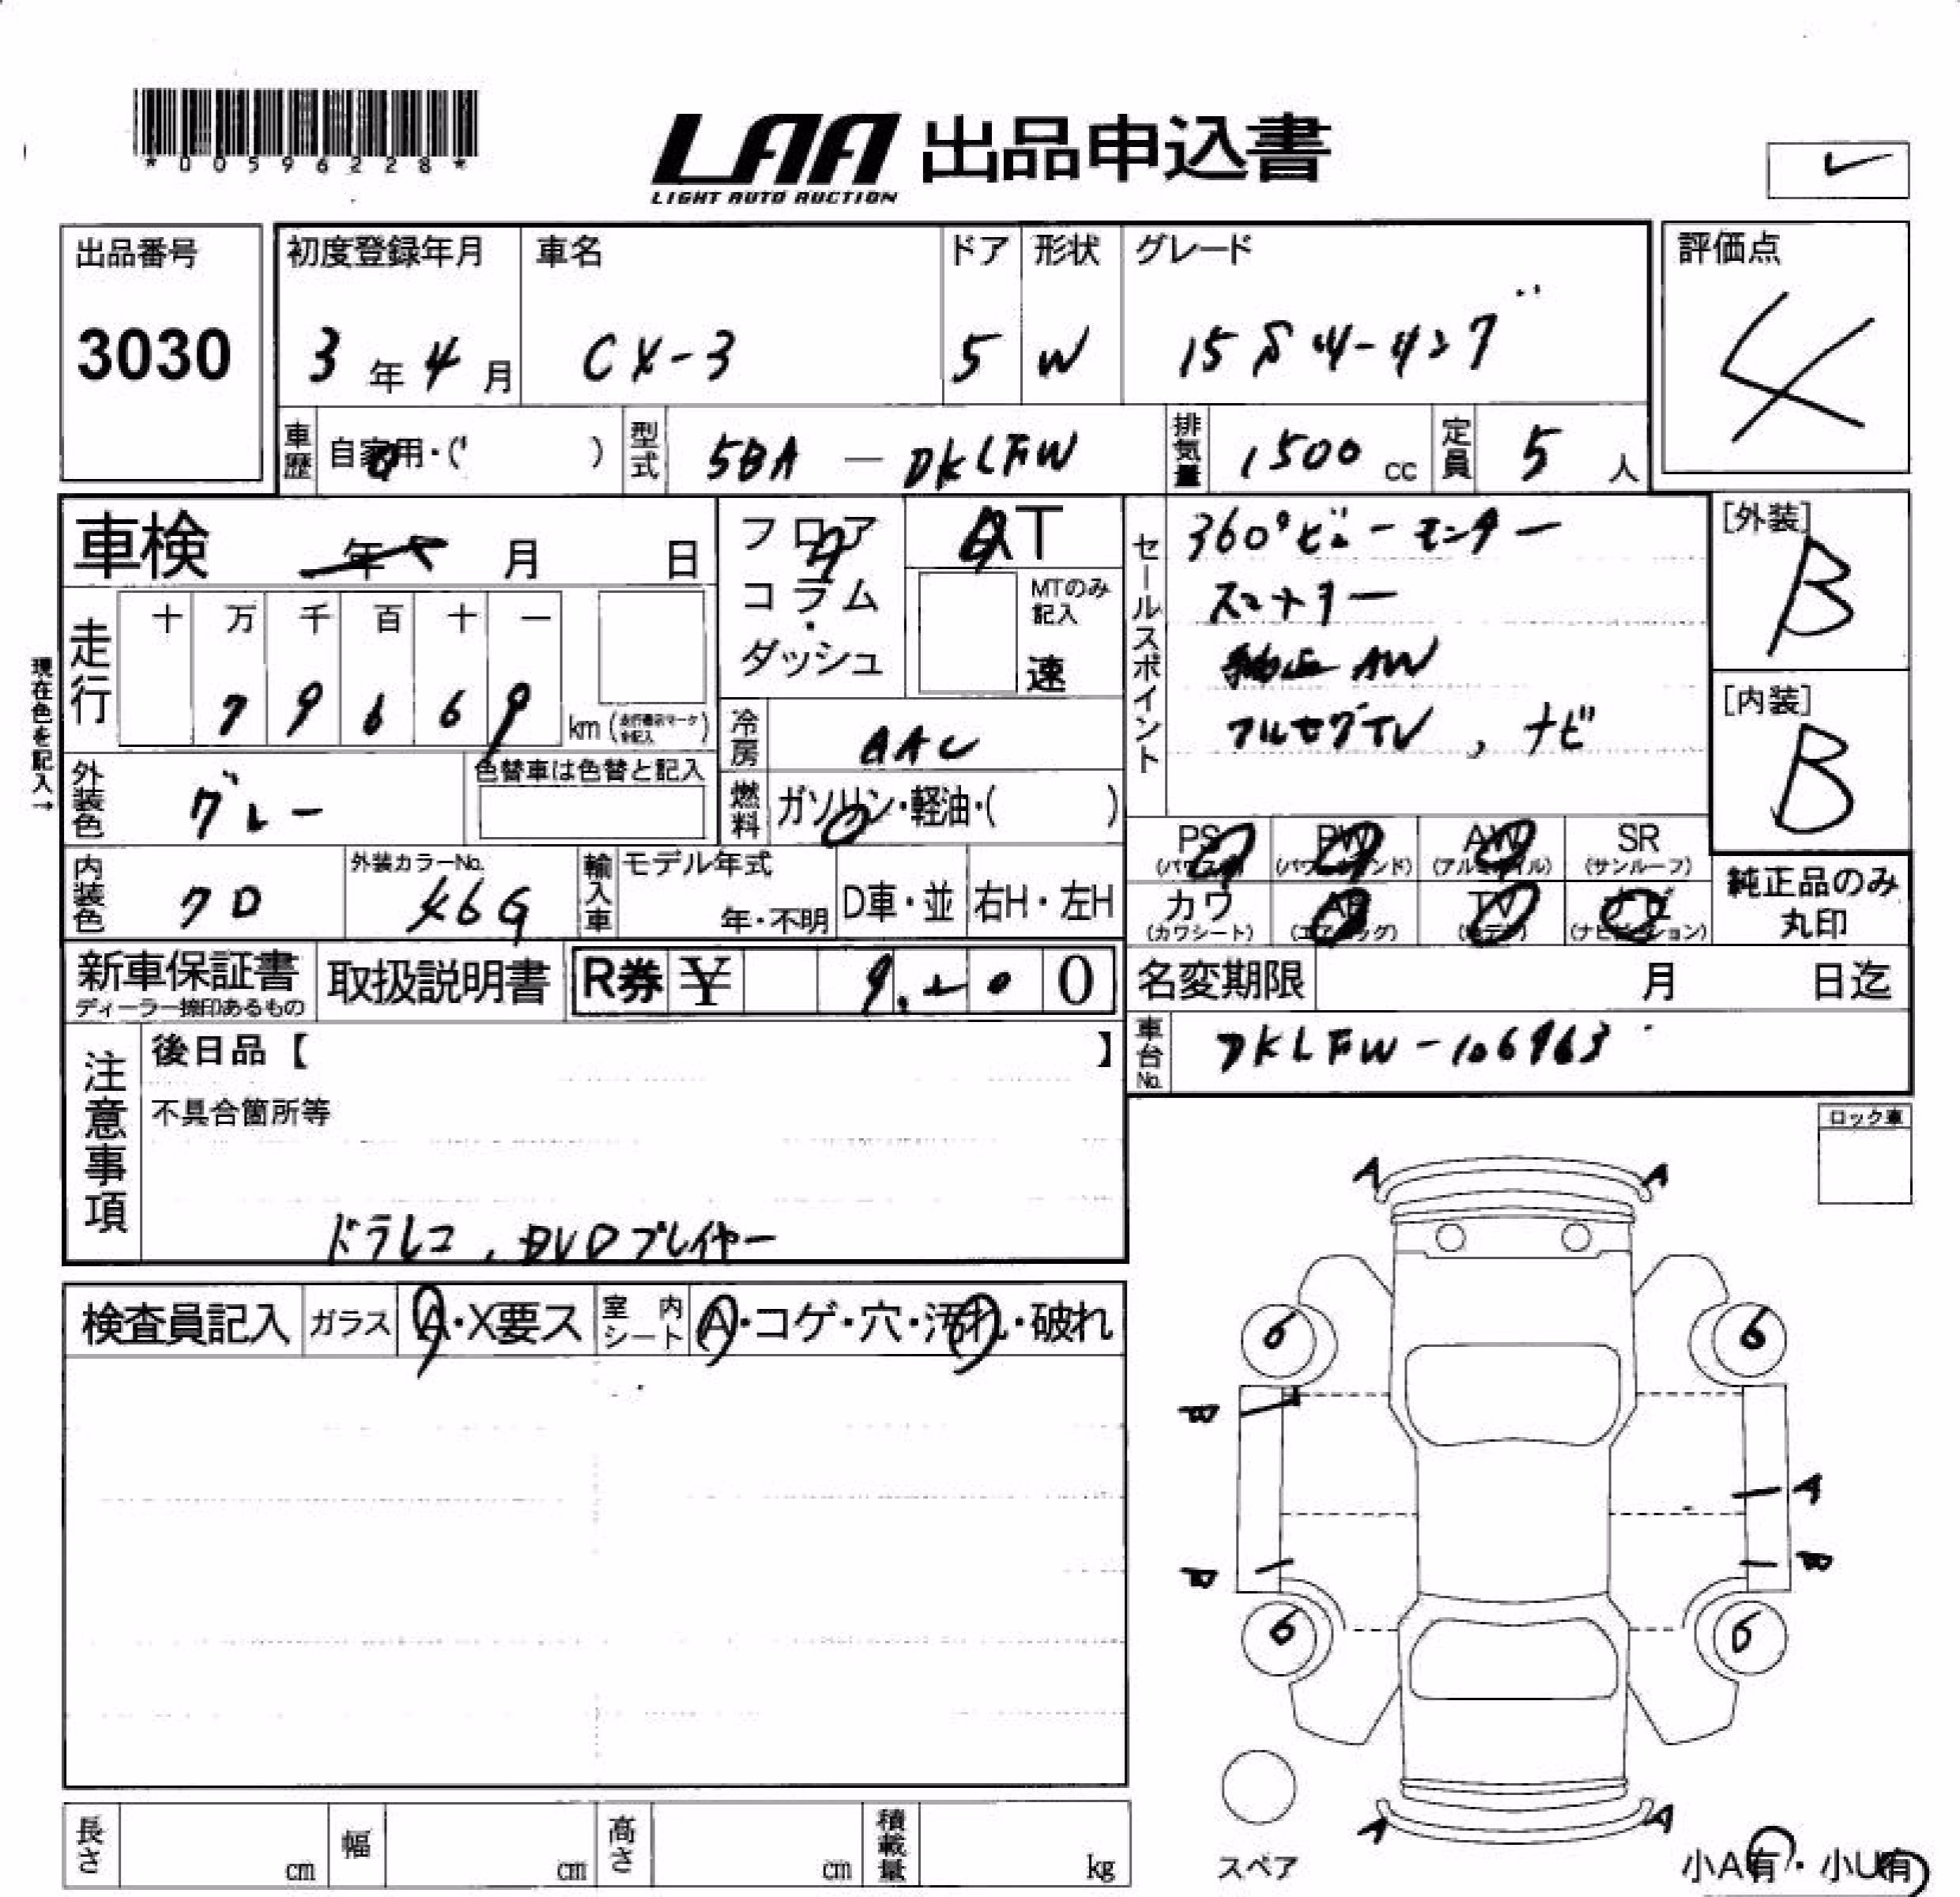 *00596228*
LAA 出品申込書
LIGHT AUTO AUCTION
出品番号 3030
初度登録年月 3年4月
車名 CX-3
ドア 5
形状 W
グレード 15Sツーリング
評価点 4
車歴 自家用・( )
型式 5BA-DKLFW
排気量 1500cc
定員 5人
車検 年 月 日
フロア・コラム・ダッシュ
AT
MTのみ記入
速
セールスポイント
360°ビューモニター
スマートキー
純正AW
フルセグTV、ナビ
[外装] B
[内装] B
現在色を記入→
走行 十 万 千 百 十 一
7 9 6 6 9
km (走行表示マークを記入)
冷房 AAC
外装色 グレー
色替車は色替と記入
燃料 ガソリン・軽油・( )
内装色 クロ
外装カラーNo. 46G
輸入車 モデル年式
年・不明
D車・並
右H・左H
PS (パワステ)
PW (パワーウインド)
AW (アルミホイル)
SR (サンルーフ)
カワ (カワシート)
AB (エアバッグ)
TV (テレビ)
ナビ (ナビゲーション)
純正品のみ丸印
新車保証書
ディーラー捺印あるもの
取扱説明書
R券 ¥ 0
名変期限 月 日迄
車台No. DKLFW-106963
注意事項
後日品【 】
不具合箇所等
ドラレコ、DVDプレイヤー
ロック車
検査員記入
ガラス A・X要ス
室内シート A・コゲ・穴・汚れ・破れ
A A
6 6
B
A
B B
6 6
A A
スペア
小A有・小U有
長さ cm
幅 cm
高さ cm
積載量 kg